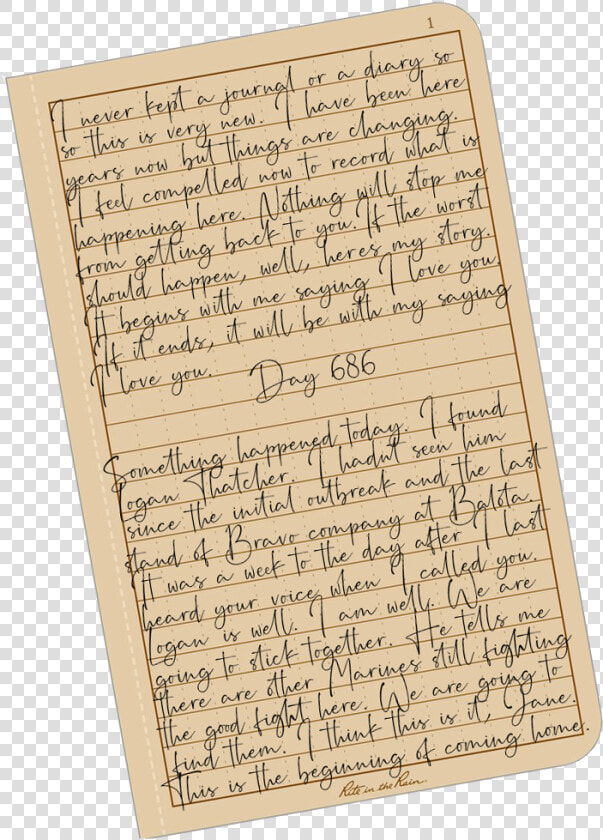 1
I never kept a journal or a diary so
so this is very new. I have been here
years now but things are changing.
I feel compelled now to record what is
happening here. Nothing will stop me
from getting back to you. If the worst
should happen, well, heres my story.
It begins with me saying I love you.
If it ends, it will be with my saying
I love you.
Day 686
Something happened today. I found
Logan Thatcher. I hadnt seen him
since the initial outbreak and the last
stand of Bravo company at Balota.
It was a week to the day after I last
heard your voice when I called you.
Logan is well. I am well. We are
going to stick together. He tells me
there are other Marines still fighting
the good fight here. We are going to
find them. I think this is it, Jane.
This is the beginning of coming home.
Rite in the Rain